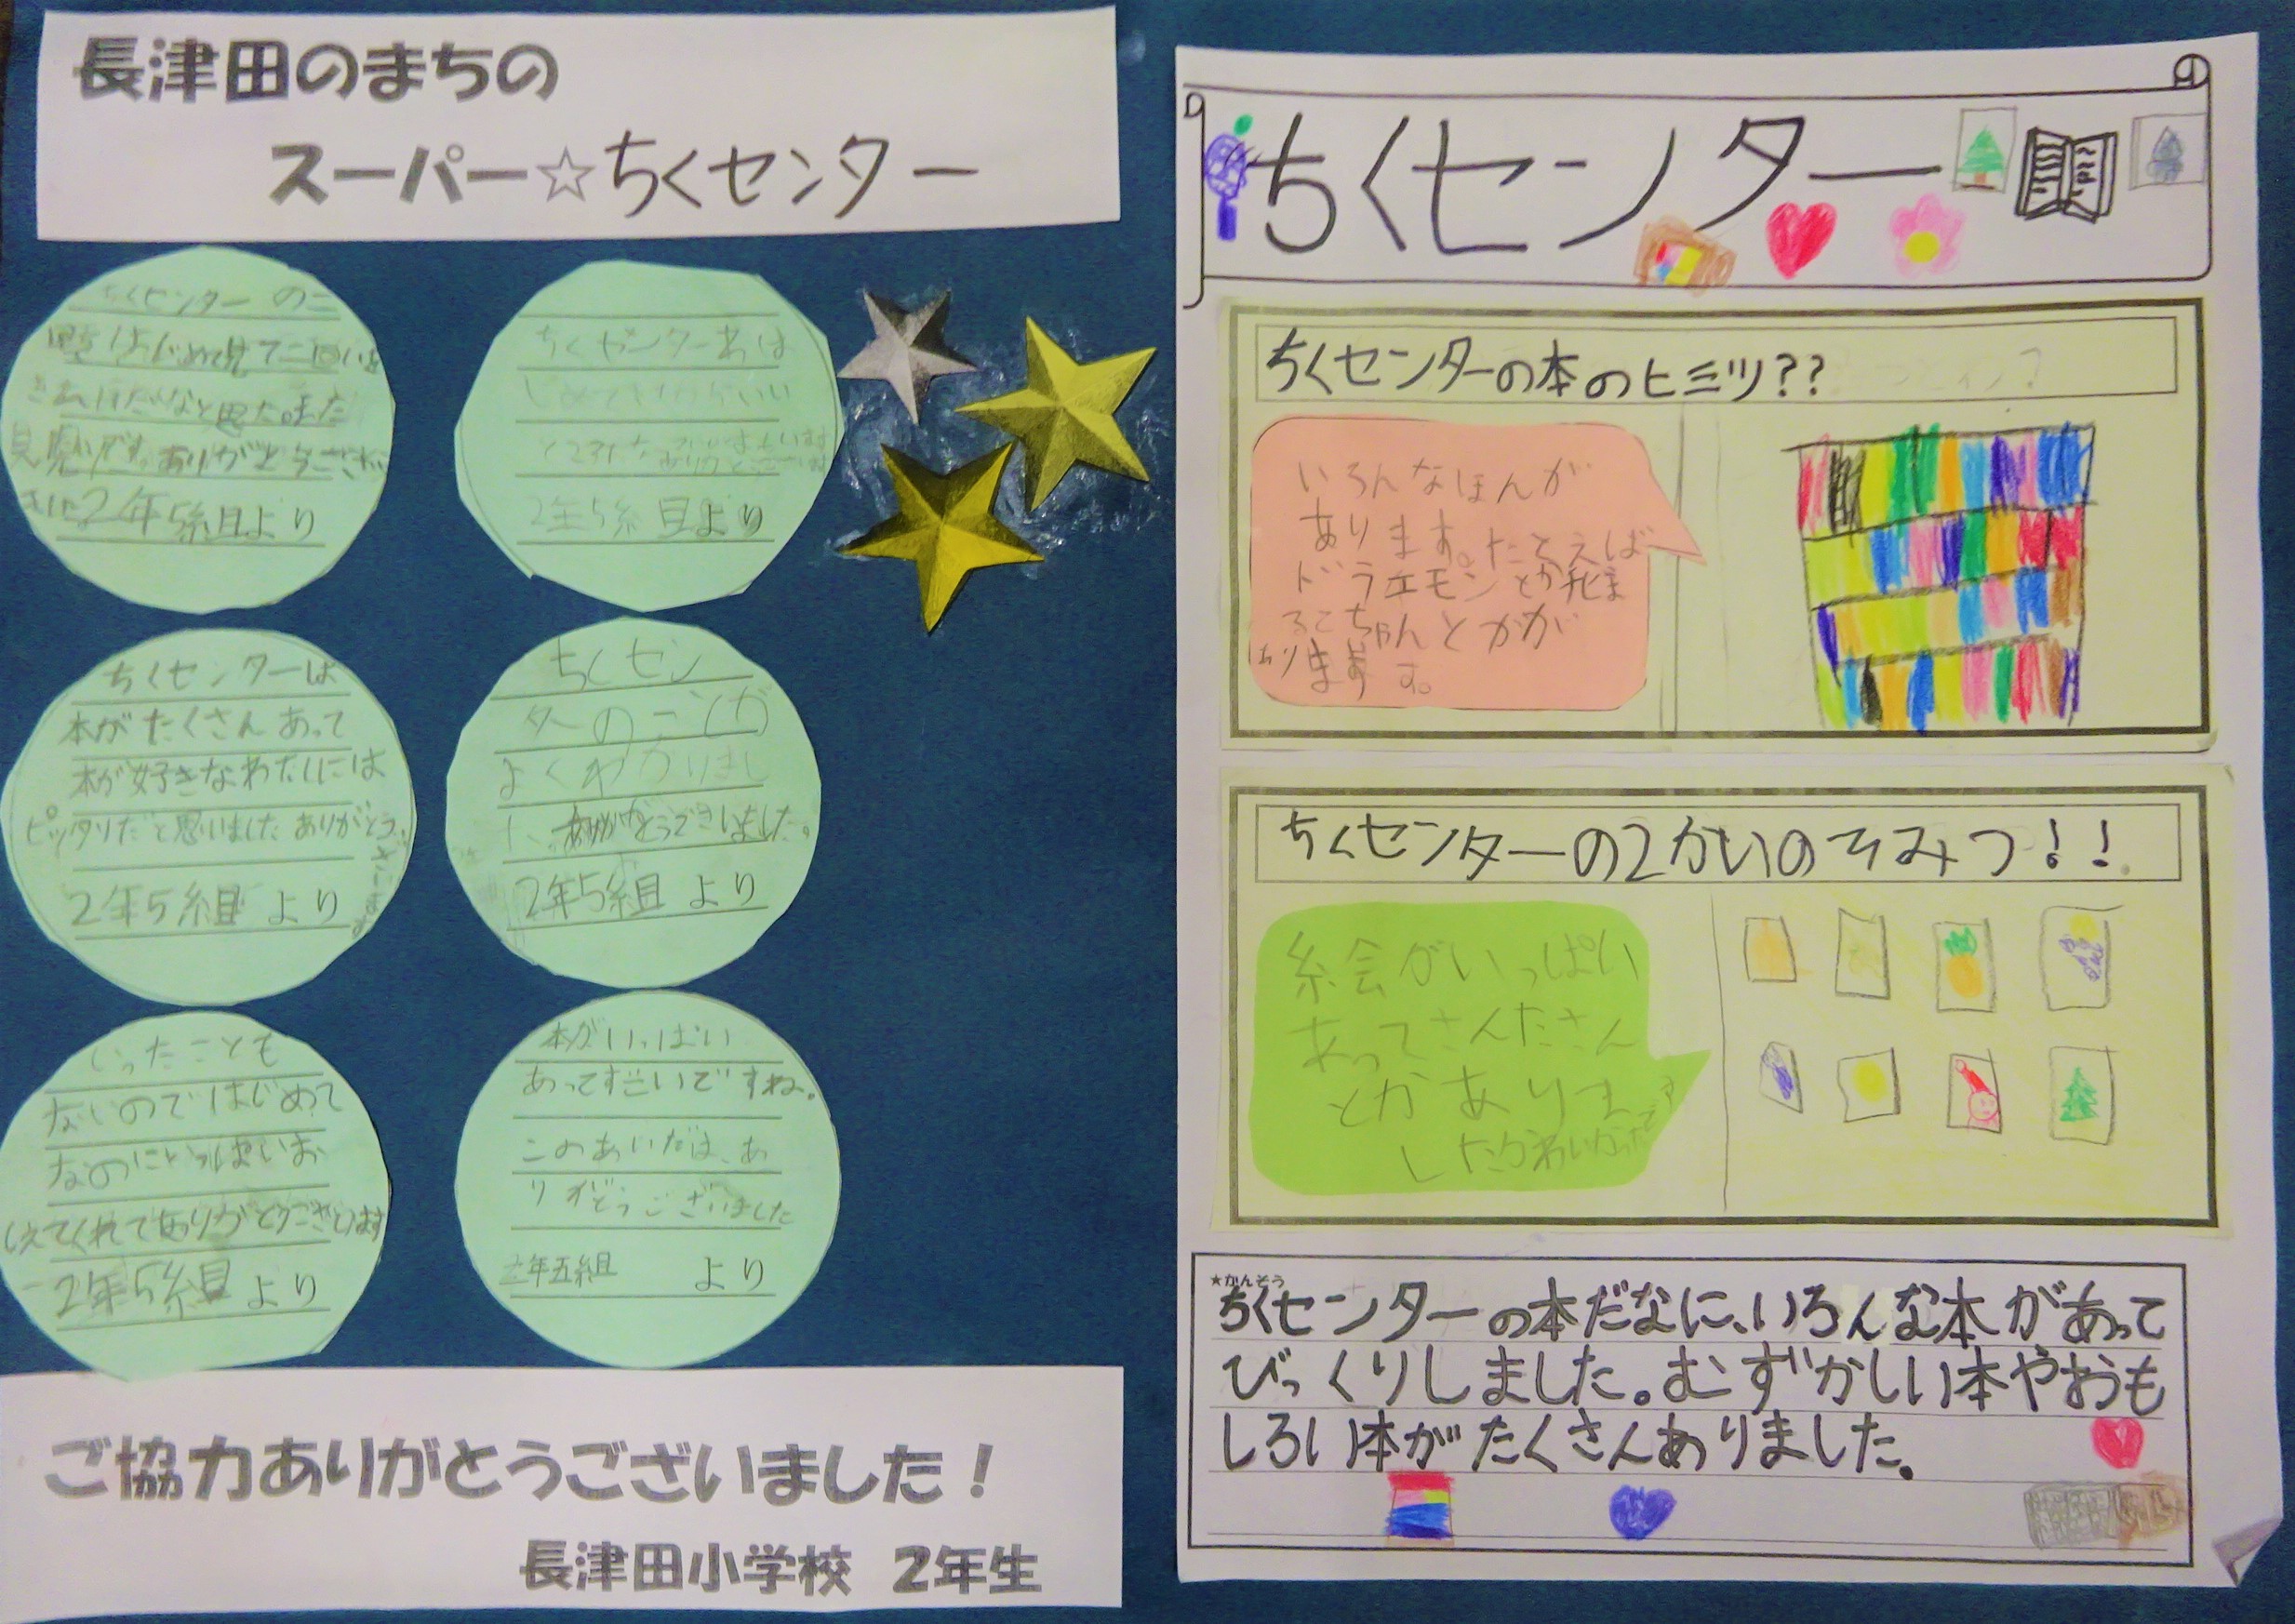 長津田のまちの
スーパー☆ちくセンター
ちくセンターのこ
はじめて見て二回い
きたいだなと思た。また
見です。ありがとうござい
2年5組より
ちくセンターは
2年5組より
ちくセンターは
本がたくさんあって
本が好きなわたしには
ピッタリだと思いました ありがとう
2年5組 より
ちくセン
ターのことが
よくわかりまし
ありがとうございました。
2年5組 より
いったことも
ないのではじめて
なのにいっぱいお
しえてくれてありがとうございます
2年5組 より
本がいっぱい
あってすごいですね。
このあいだは、あ
りがとうございました
二年五組 より
ご協力ありがとうございました!
長津田小学校 2年生
ちくセンター
ちくセンターの本のヒミツ??
いろんなほんが
あります。たとえば
ドラエモンとかちびま
るこちゃんとかが
あります。
ちくセンターの2かいのひみつ!!
絵がいっぱい
あってさんたさん
とかありま
したかわいかったです
★かんそう
ちくセンターの本だなに、いろんな本があって
びっくりしました。むずかしい本やおも
しろい本がたくさんありました。